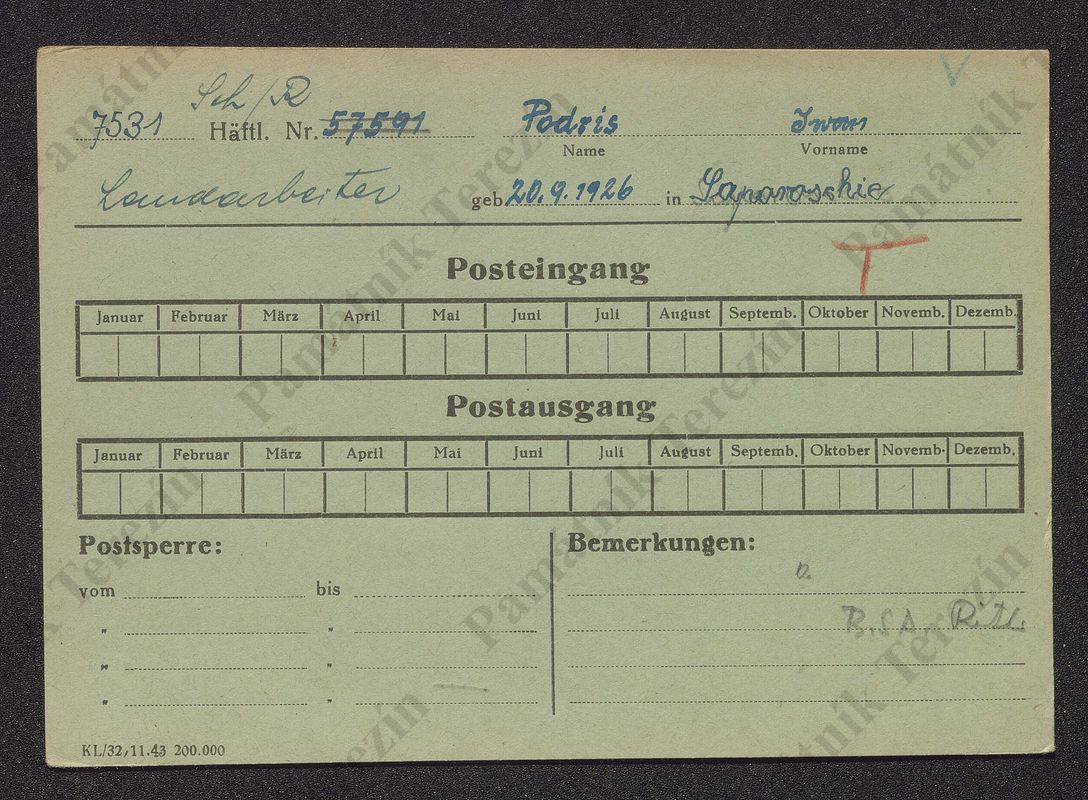 Sch/R
7531 Häftl. Nr. 57591 Podris Iwan
Name Vorname
Landarbeiter geb 20.9.1926 in Saporoschie
T
Posteingang
Januar Februar März April Mai Juni Juli August Septemb. Oktober Novemb. Dezemb.
Postausgang
Januar Februar März April Mai Juni Juli August Septemb. Oktober Novemb. Dezemb.
Postsperre: Bemerkungen:
vom bis
" "
" "
" "
B.S.A.
KL/32/11.43 200.000
Památník Terezín